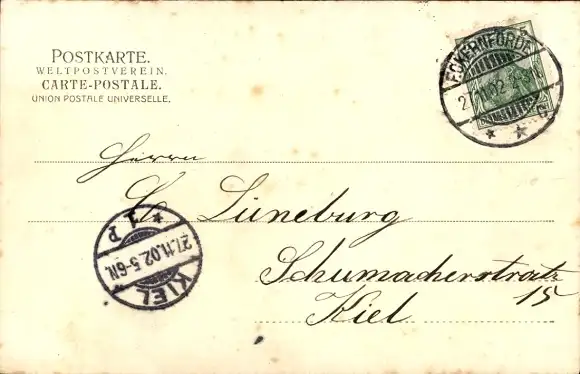 POSTKARTE.
WELTPOSTVEREIN.
CARTE-POSTALE.
UNION POSTALE UNIVERSELLE.
ECKERNFÖRDE
27.11.02
Herrn
Lüneburg
Schumacherstraße
15
Kiel
KIEL
27.11.02.5-6N.
1 P